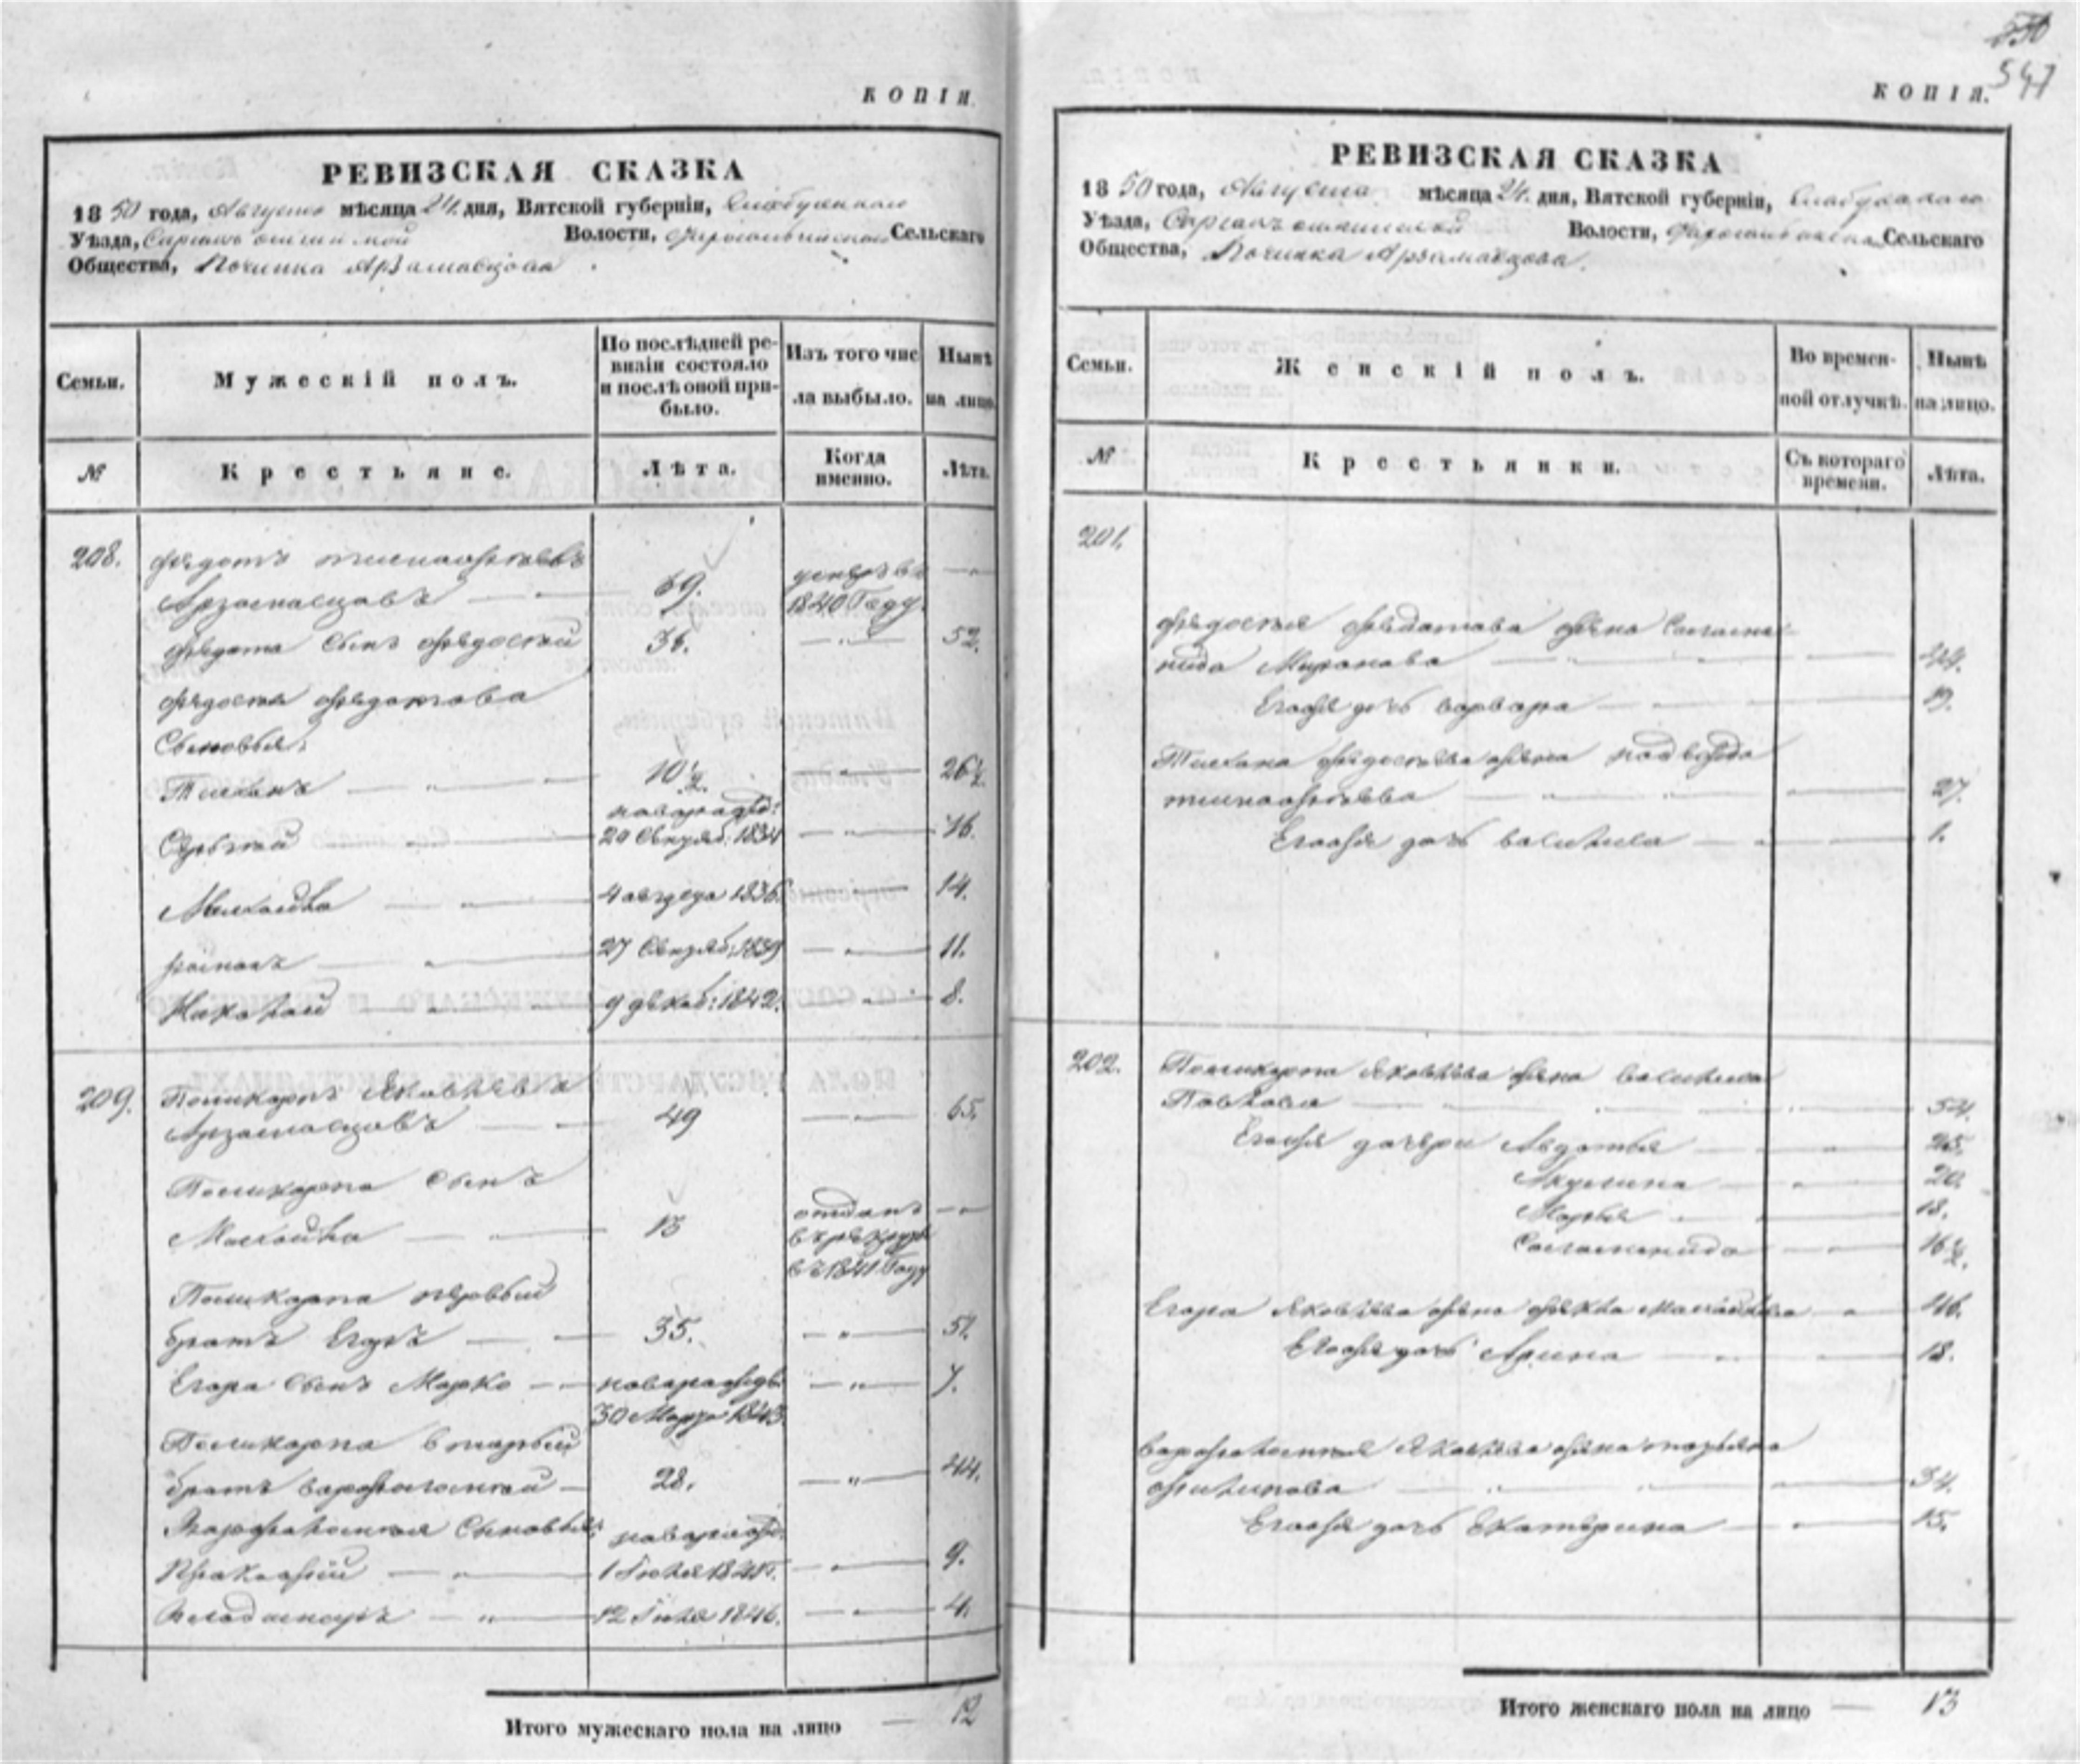 КОПІЯ.
РЕВИЗСКАЯ СКАЗКА
1850 года, Августа мѣсяца 24 дня, Вятской губерніи,
Уѣзда, Волости, Сельскаго
Общества, Починка Арзамасцова
Семьи.
Мужескій полъ.
По послѣдней ре-
визіи состояло
и послѣ оной при-
было.
Изъ того чис
ла выбыло.
Нынѣ
на лицо.
№
Крестьяне.
Лѣта.
Когда
именно.
Лѣта.
208. Федотъ
Арзамасцовъ 69. умеръ въ
1840 Году
Федота сынъ Федосѣй 36. 52.
Федосѣя Федотова
Сыновья:
Тихонъ 10½ 26½
новорожд:
Сергѣй 1834 16.
Михайла 1836. 14.
Романъ 27 1839 11.
Николай 9 декаб: 1842. 8.
209. Поликарпъ Яковлевъ
Арзамасцовъ 49 65.
Поликарпа Сынъ
Михайла 13 отданъ
въ рекруты
въ 1841 Году
Поликарпа первый
братъ Егоръ 35. 51.
Егора сынъ Марко новорожд: 7.
30 Марта 1843
Поликарпа вторый
братъ Варфоломей 28. 44.
Варфоломея Сыновья: новорожд:
Прокофій 1 Іюля 9.
Владимиръ 12 Іюля 1846. 4.
Итого мужескаго пола на лицо 12
550
547
КОПІЯ.
РЕВИЗСКАЯ СКАЗКА
1850 года, Августа мѣсяца 24 дня, Вятской губерніи,
Уѣзда, Волости, Сельскаго
Общества, Починка Арзамасцова.
Семьи.
Женскій полъ.
Во времен-
ной отлучкѣ.
Нынѣ
на лицо.
№
Крестьянки.
Съ котораго
времени.
Лѣта.
201.
Федосѣя Федотова жена Соломо-
нида Миронова 44.
Егожъ дочь Варвара 19.
Тихона Федосѣева жена
27.
Егожъ дочь Василиса 1.
202. Поликарпа Яковлева жена Василиса
Павлова 54.
Егожъ дочери Авдотья 25.
Акулина 20.
Марья 18.
Соломонида 16½.
Егора Яковлева жена Фекла Михайлова 46.
Егожъ дочь Арина 18.
Варфоломея Яковлева жена Татьяна
Филипова 34.
Егожъ дочь Екатерина 15.
Итого женскаго пола на лицо 13